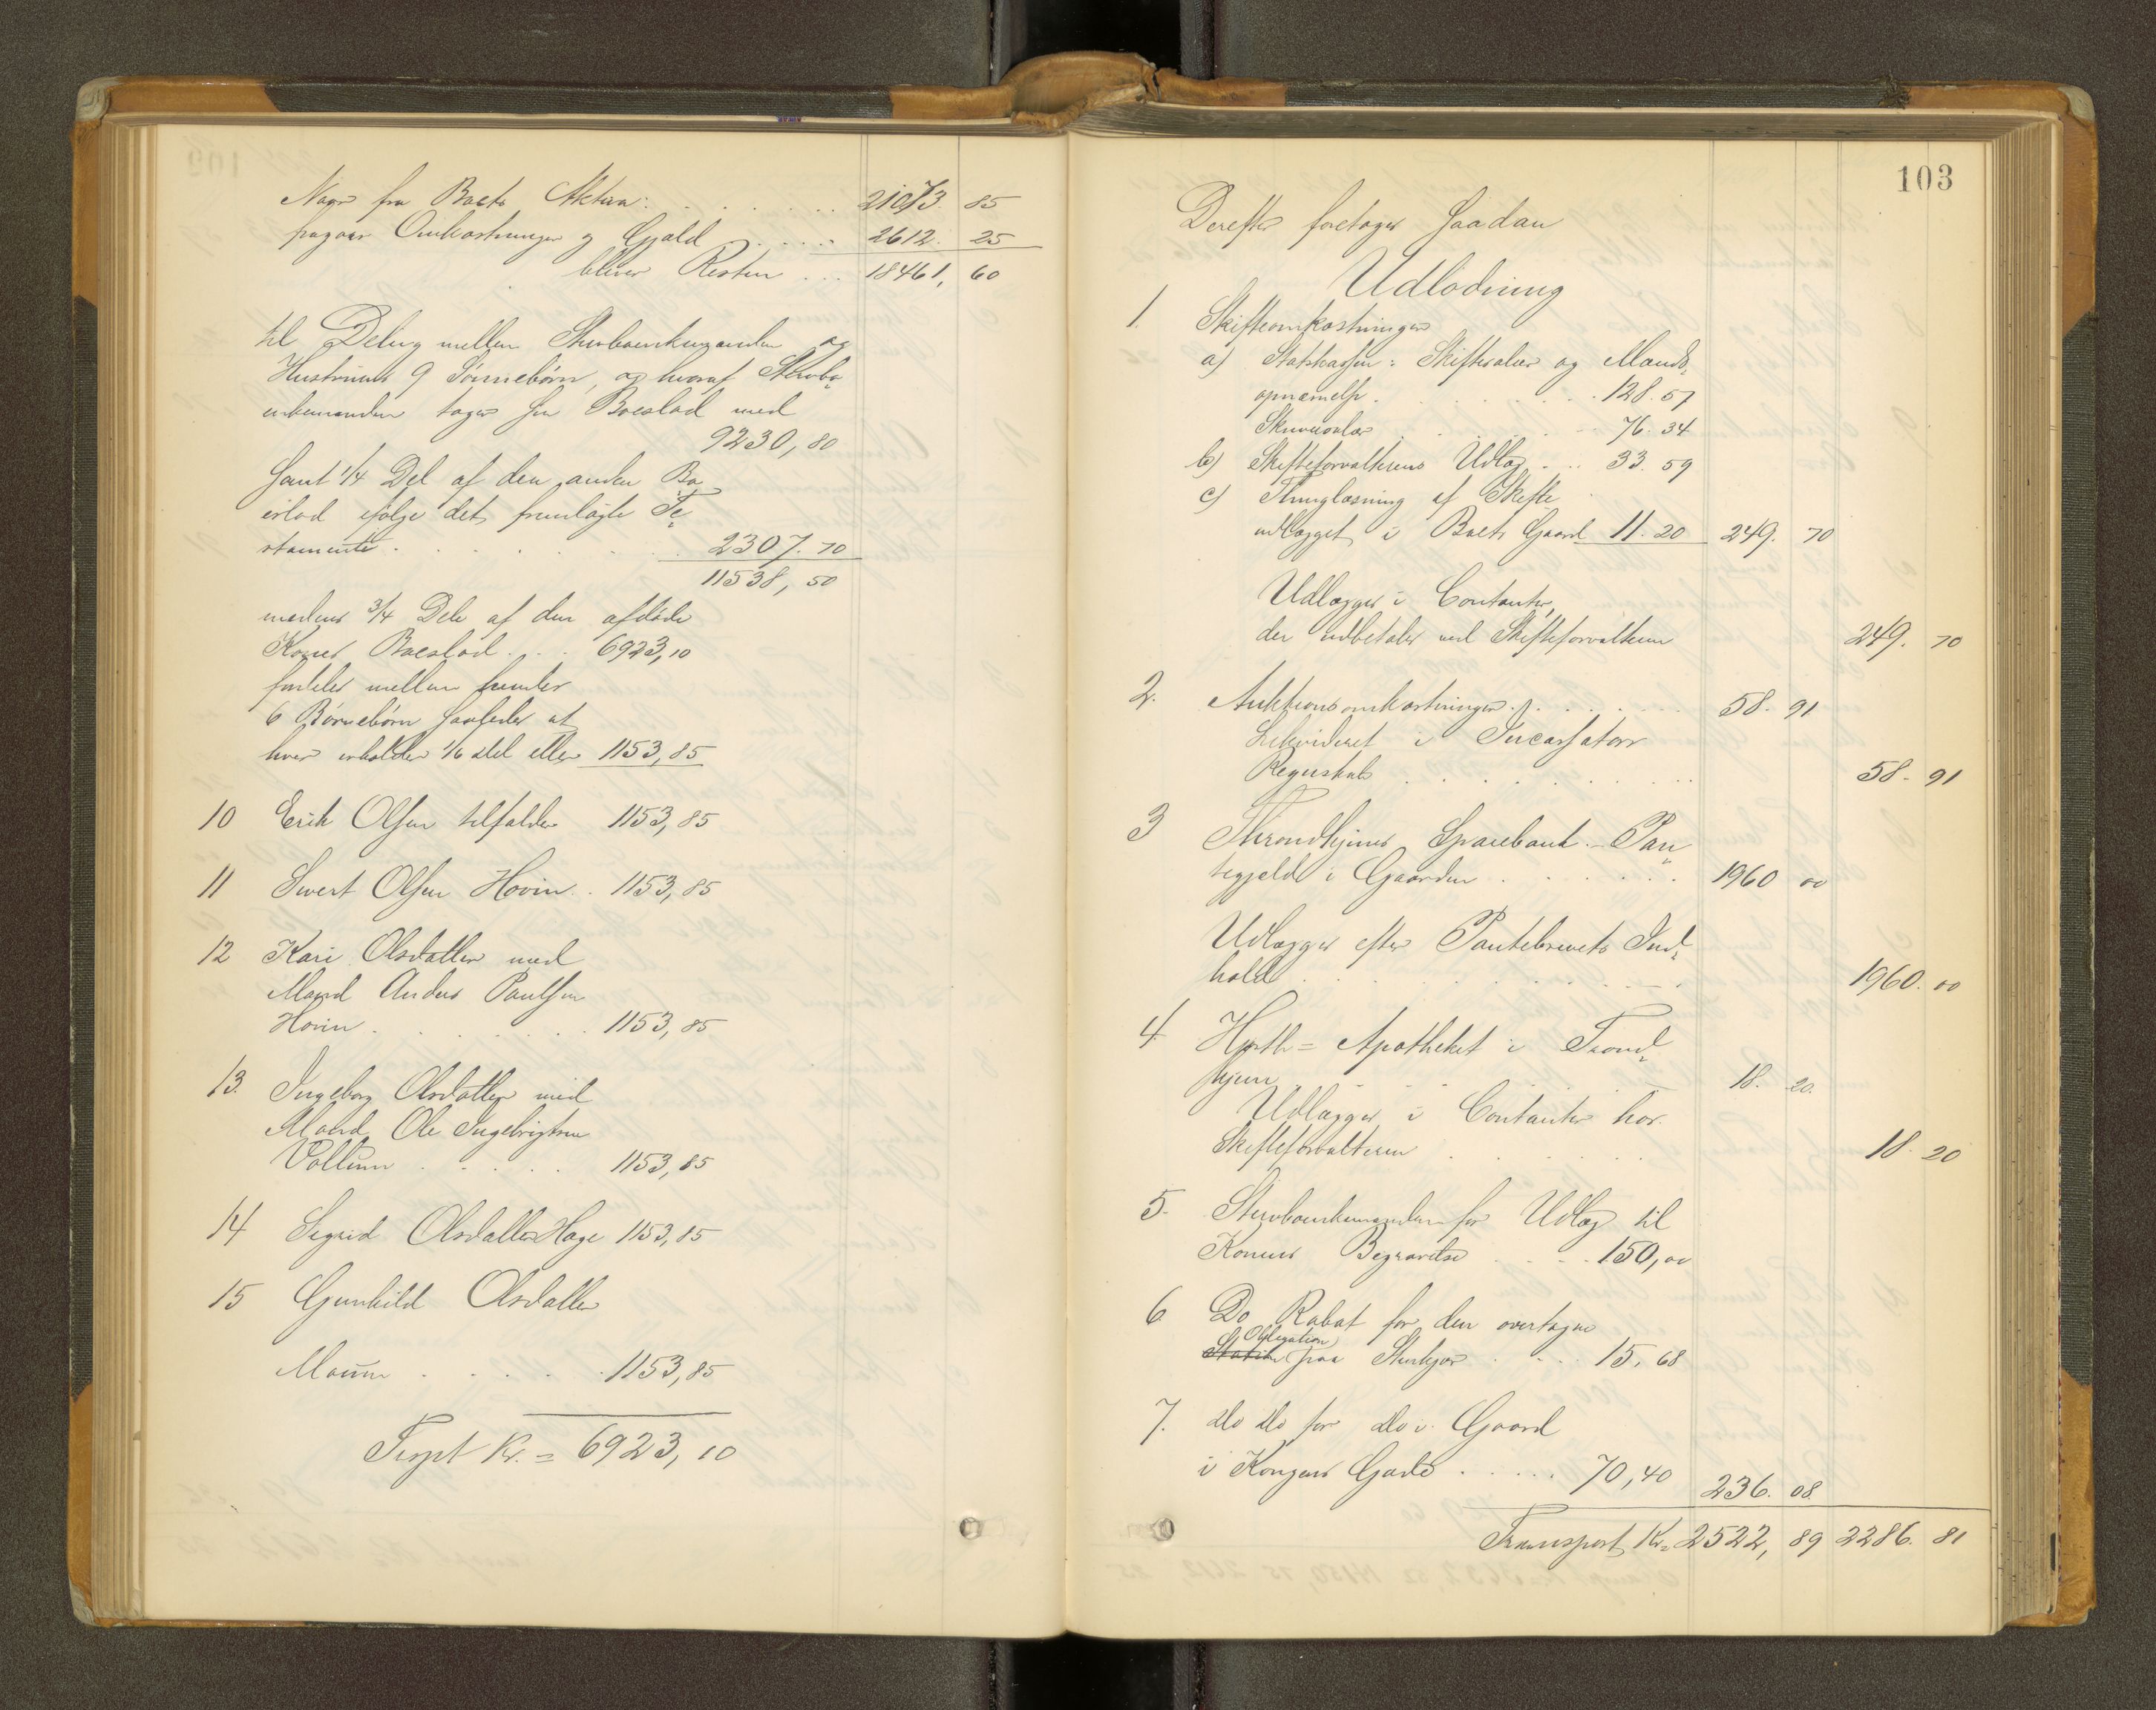 Naar fra Boets Aktiva: . . . . . . 21073. 85
fragaar Omkostninger og Gjæld . . . . 2612. 25
bliver Resten . . . 18461, 60
til Deling mellem Stervboenkemanden og
Hustruens 9 Sønnebørn, og hvoraf Stervbo„
enkemanden tager sin Boeslod med
9230, 80
samt 1/4 Del af den anden Bo„
eslod ifølge det fremlagte Te„
stamente . . . . . . 2307. 70
11538, 50
medens 3/4 Dele af den afdøde
Kones Boeslod . . . 6923, 10
fordeles mellem hendes
6 Børnebørn saaledes at
hver erholder 1/6 del eller 1153, 85
10 Erik Olsen tilfalder 1153, 85
11 Sivert Olsen Hovin . . 1153, 85
12 Kari Olsdatter med
Mand Anders Paulsen
Hovin . . . . . . 1153, 85
13. Ingeborg Olsdatter med
Mand Ole Ingebrigtsen
Vollum . . . . . 1153, 85
14 Sigrid Olsdatter Hage 1153, 85
15 Gunhild Olsdatter
Moum . . . . . 1153, 85
Tirpt Kr. = 6923, 10
103
Derefter foretages saadan
Udlodning
1. Skifteomkostninger
a) Statskassen: Skiftesalær og Mands„
opnævnelse . . . . . . 128. 57
Skriversalær . . . . . 76. 34
b) Skifteforvalterens Udlæg . . . 33. 59
c) Thinglæsning af Skifte
udlægget i Boets Gaard 11. 20 249. 70
Udlægges i Contanter,
der udbetales ved Skifteforvalteren 249. 70
2. Auktionsomkostninger . . . . . . 58. 91
Likvideret i Incassators
Regnskab . . . . . . . . 58. 91
3 Throndhjems Sparebank. - Pan„
tegjæld i Gaarden . . . . . . 1960 00
Udlægges efter Pantebrevets Ind„
hold . . . . . . . . . 1960. 00
4 Hjorth= Apotheket i Trond„
hjem . . . . . . 18. 20.
Udlægges i Contanter hos
Skifteforvalteren . . . . . . 18. 20
5. Stervboenkemanden for Udlæg til
Konens Begravelse . . . . 150, 00
6 Do Rabat for den overtagne
Obligation
paa . . . . 15, 68
7. do do for do i Gaard
i Kongens Gade . . . . . 70, 40 236. 08
Transport Kr= 2522, 89 2286. 81